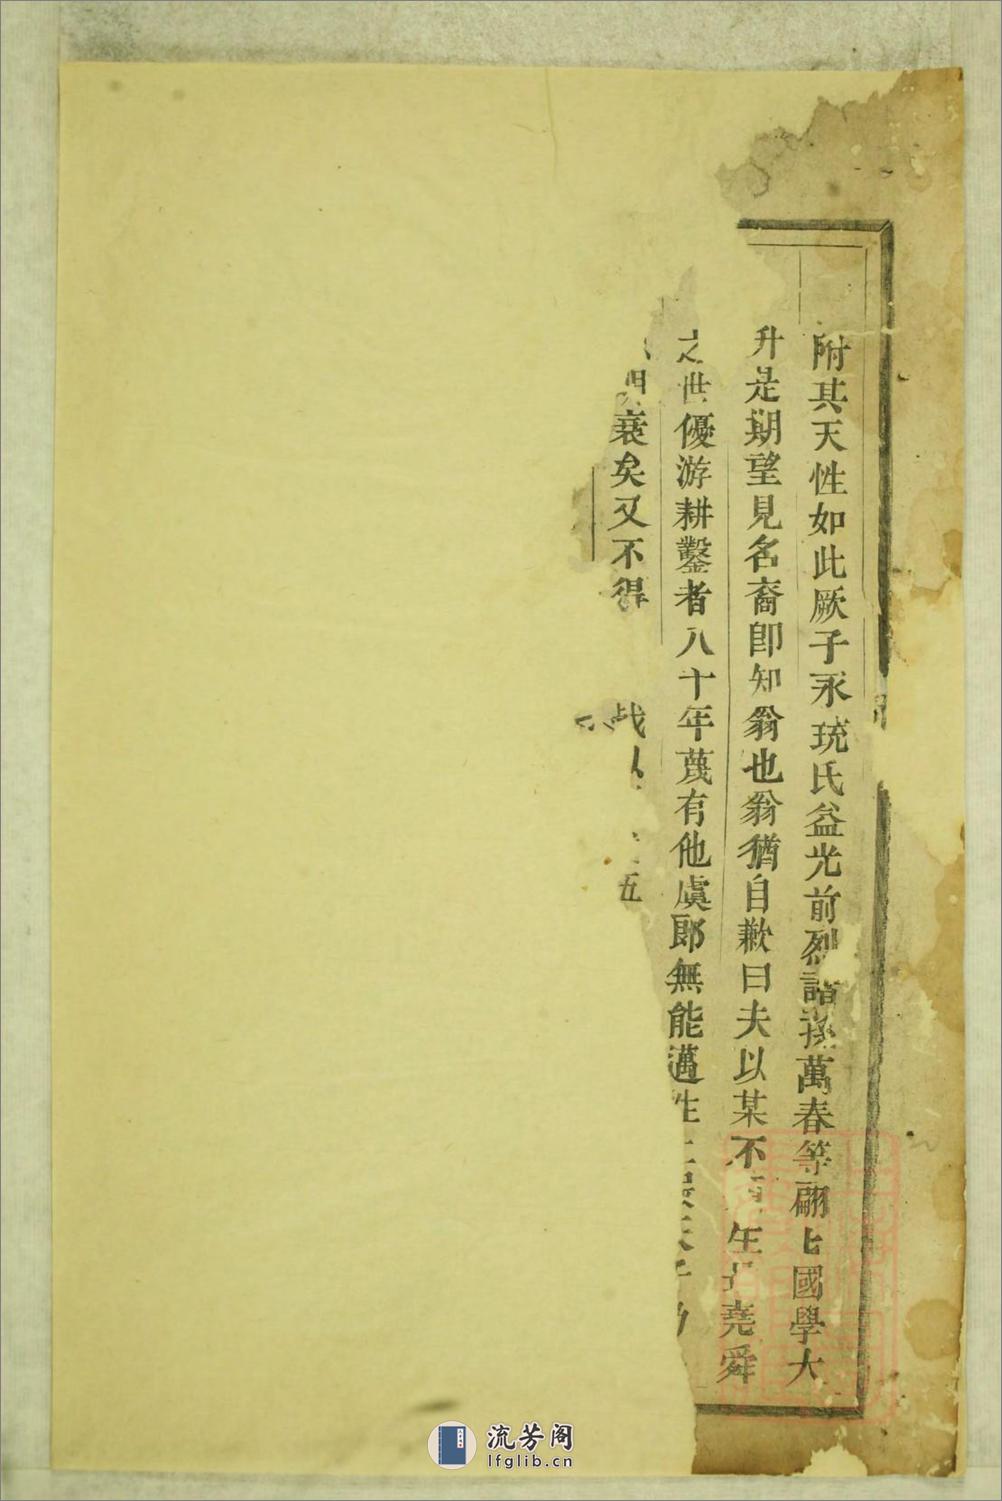 附其天性如此厥子永珫氏益光前烈諸孫萬春等翩上國學大
升是期望見名裔卽知翁也翁猶自歉曰夫以某不年堯舜
之世優游耕鑿者八十年蔑有他虞郎無能邁性
衰矣又不得
五
流芳阁
lfglib.cn